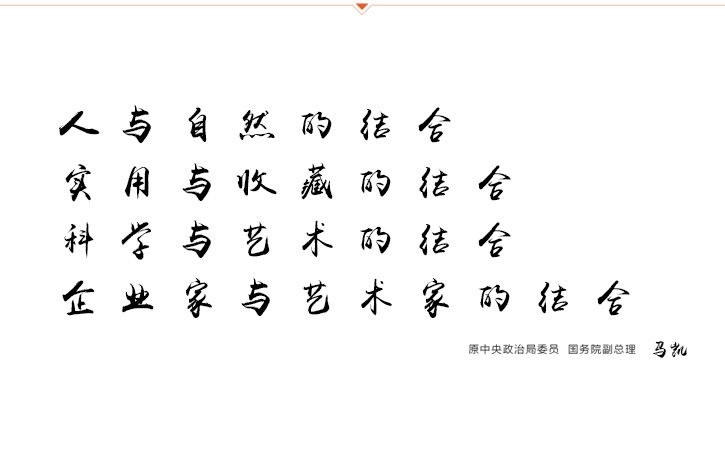 人与自然的结合
实用与收藏的结合
科学与艺术的结合
企业家与艺术家的结合
原中央政治局委员 国务院副总理 马凯